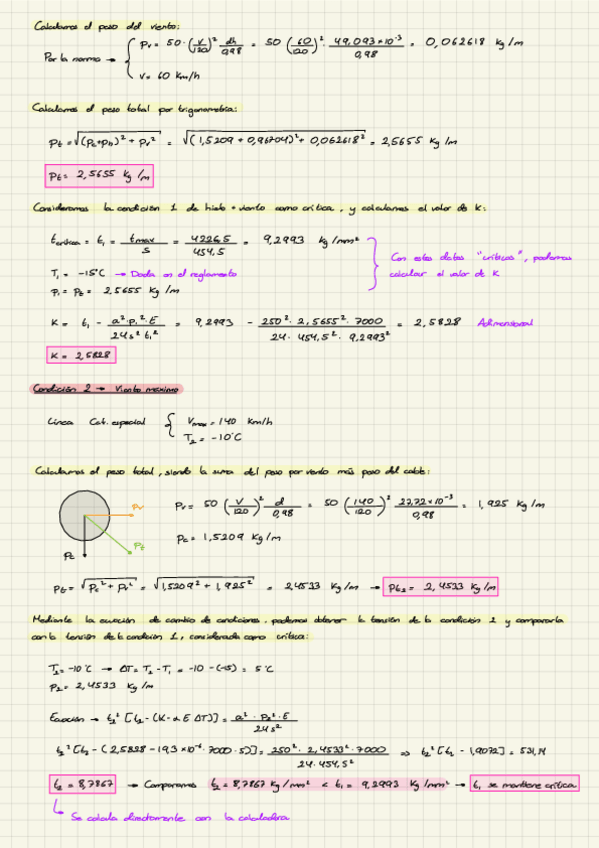 Calculamos el peso del viento:
Por la norma → { Pv = 50 · (v/120)² dh/0,98 = 50 (60/120)² · 49,093×10⁻³/0,98 = 0,062618 Kg/m
v = 60 Km/h
Calculamos el peso total por trigonometría:
Pt = √((Pc+Ph)² + Pv²) = √((1,5209 + 0,96704)² + 0,062618²) = 2,5655 Kg/m
Pt = 2,5655 Kg/m
Consideramos la condición 1 de hielo + viento como crítica, y calculamos el valor de K:
tcrítica = t₁ = tmax/S = 4226,5/454,5 = 9,2993 Kg/mm²
T₁ = -15°C → Dada en el reglamento
P₁ = Pt = 2,5655 Kg/m
Con estos datos "críticos", podemos
calcular el valor de K
K = t₁ - a²·P₁²·E/24s²t₁² = 9,2993 - 250²·2,5655²·7000/24·454,5²·9,2993² = 2,5828 Adimensional
K = 2,5828
Condición 2 → Viento máximo
Línea Cat. especial { Vmax = 140 Km/h
T₂ = -10°C
Calculamos el peso total, siendo la suma del peso por viento más peso del cable:
Pv = 50 (v/120)² d/0,98 = 50 (140/120)² 27,72×10⁻³/0,98 = 1,925 Kg/m
Pv
Pc = 1,5209 Kg/m
Pt
Pc
Pt = √(Pc² + Pv²) = √(1,5209² + 1,925²) = 2,4533 Kg/m → Pt₂ = 2,4533 Kg/m
Mediante la ecuación de cambio de condiciones, podemos obtener la tensión de la condición 2 y compararla
con la tensión de la condición 1, considerada como crítica:
T₂ = -10°C → ΔT = T₂ - T₁ = -10 - (-15) = 5°C
P₂ = 2,4533 Kg/m
Ecuación → t₂² [t₂ - (K - α E ΔT)] = a²·P₂²·E/24s²
t₂² [t₂ - (2,5828 - 19,3×10⁻⁶·7000·5)] = 250²·2,4533²·7000/24·454,5² ⇒ t₂² [t₂ - 1,9072] = 531,14
t₂ = 8,7867 → Comparamos t₂ = 8,7867 Kg/mm² < t₁ = 9,2993 Kg/mm² → t₁ se mantiene crítica
Se calcula directamente con la calculadora